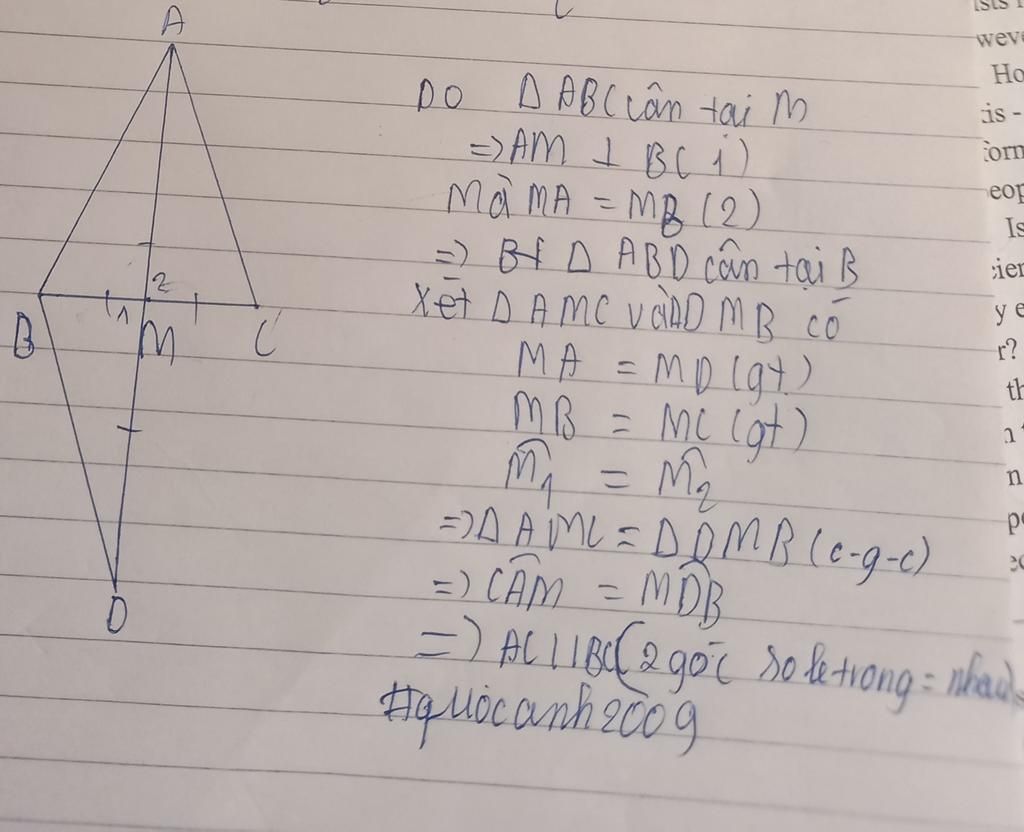 A
B
1
2
M
C
D
DO Δ ABC cân tại M
=> AM ⊥ BC (1)
Mà MA = MB (2)
=> Δ ABD cân tại B
Xét Δ AMC và Δ DMB có
MA = MD (gt)
MB = MC (gt)
M̂1 = M̂2
=> Δ AMC = Δ DMB (c-g-c)
=> CÂM = MD̂B
=> AC // BC (2 góc so le trong = nhau)
#quocanh2009
ists
weve
Ho
is -
form
eop
Is
cien
y e
r?
th
n
pe